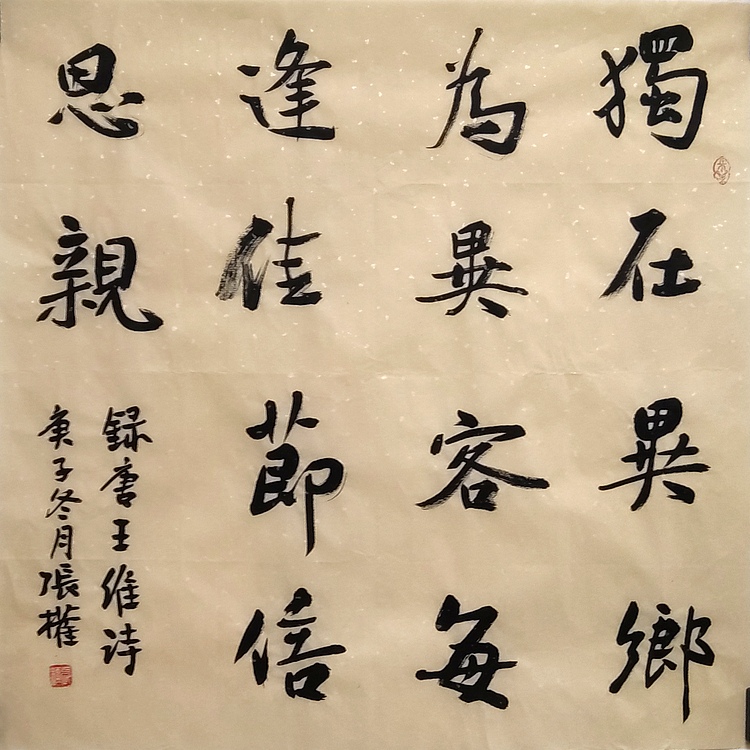 獨在異鄉
為異客每
逢佳節倍
思親
録唐王維诗
庚子冬月張權